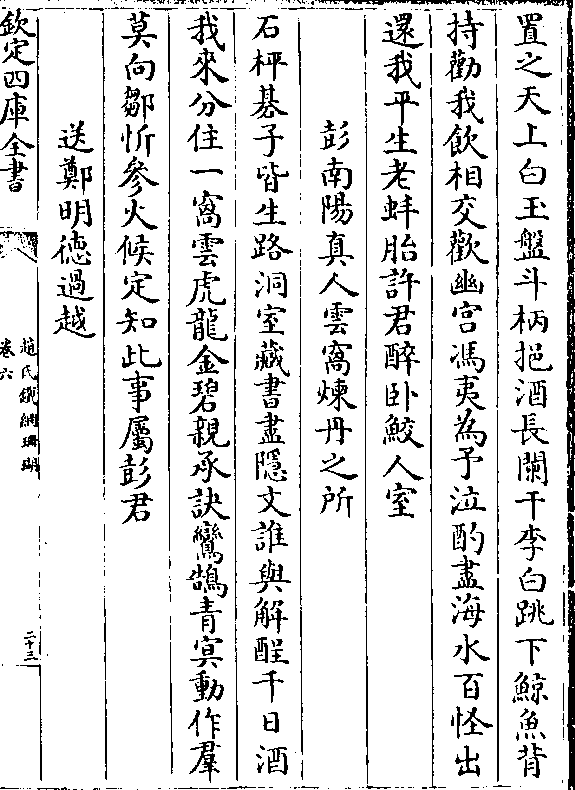 置之天上白玉盤斗柄挹酒長闌干李白跳下鯨魚背
持勸我飲相交歡幽宫馮夷為予泣酌盡海水百怪出
還我平生老蚌胎許君醉卧鮫人室
彭南陽真人雲窩煉丹之所
石枰碁子皆生路洞室藏書盡隱文誰與解酲千日酒
我來分住一窩雲虎龍金碧親承訣鸞鵠青冥動作羣
莫向鄒忻參火候定知此事屬彭君
送鄭明德過越
欽定四庫全書
趙氏鐵網珊瑚
卷六
二十三